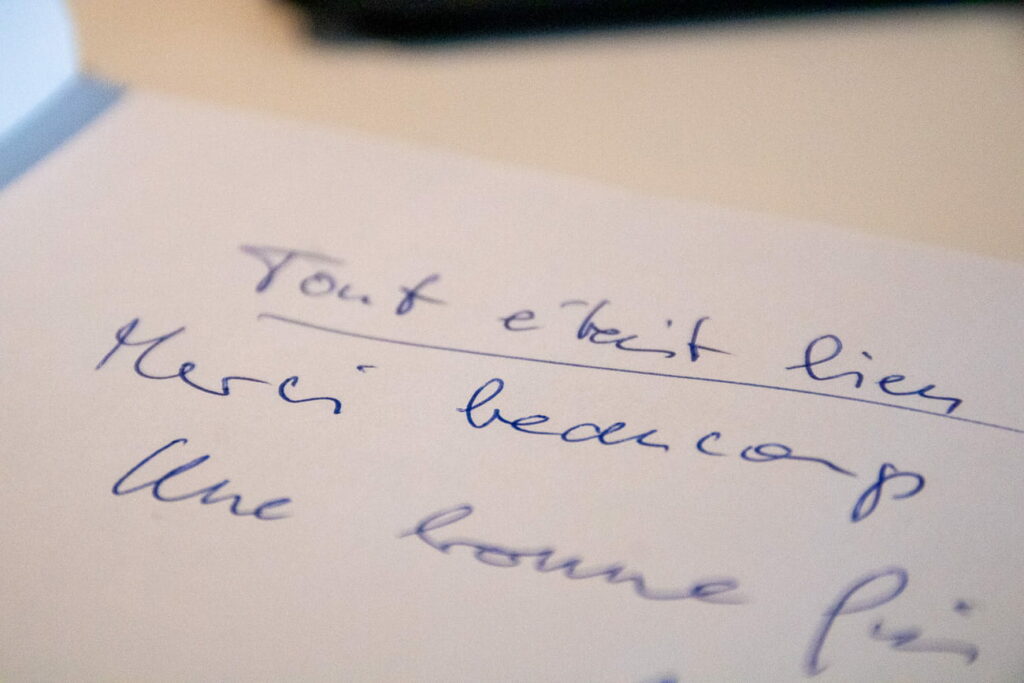 Tout était bien
Merci beaucoup
Une bonne fin